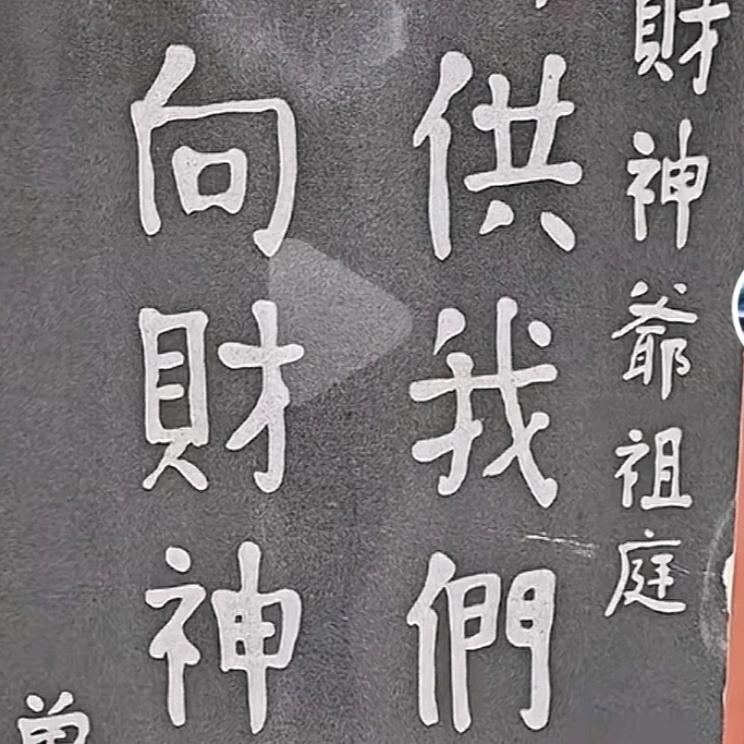 財神爺祖庭
供我們
向財神